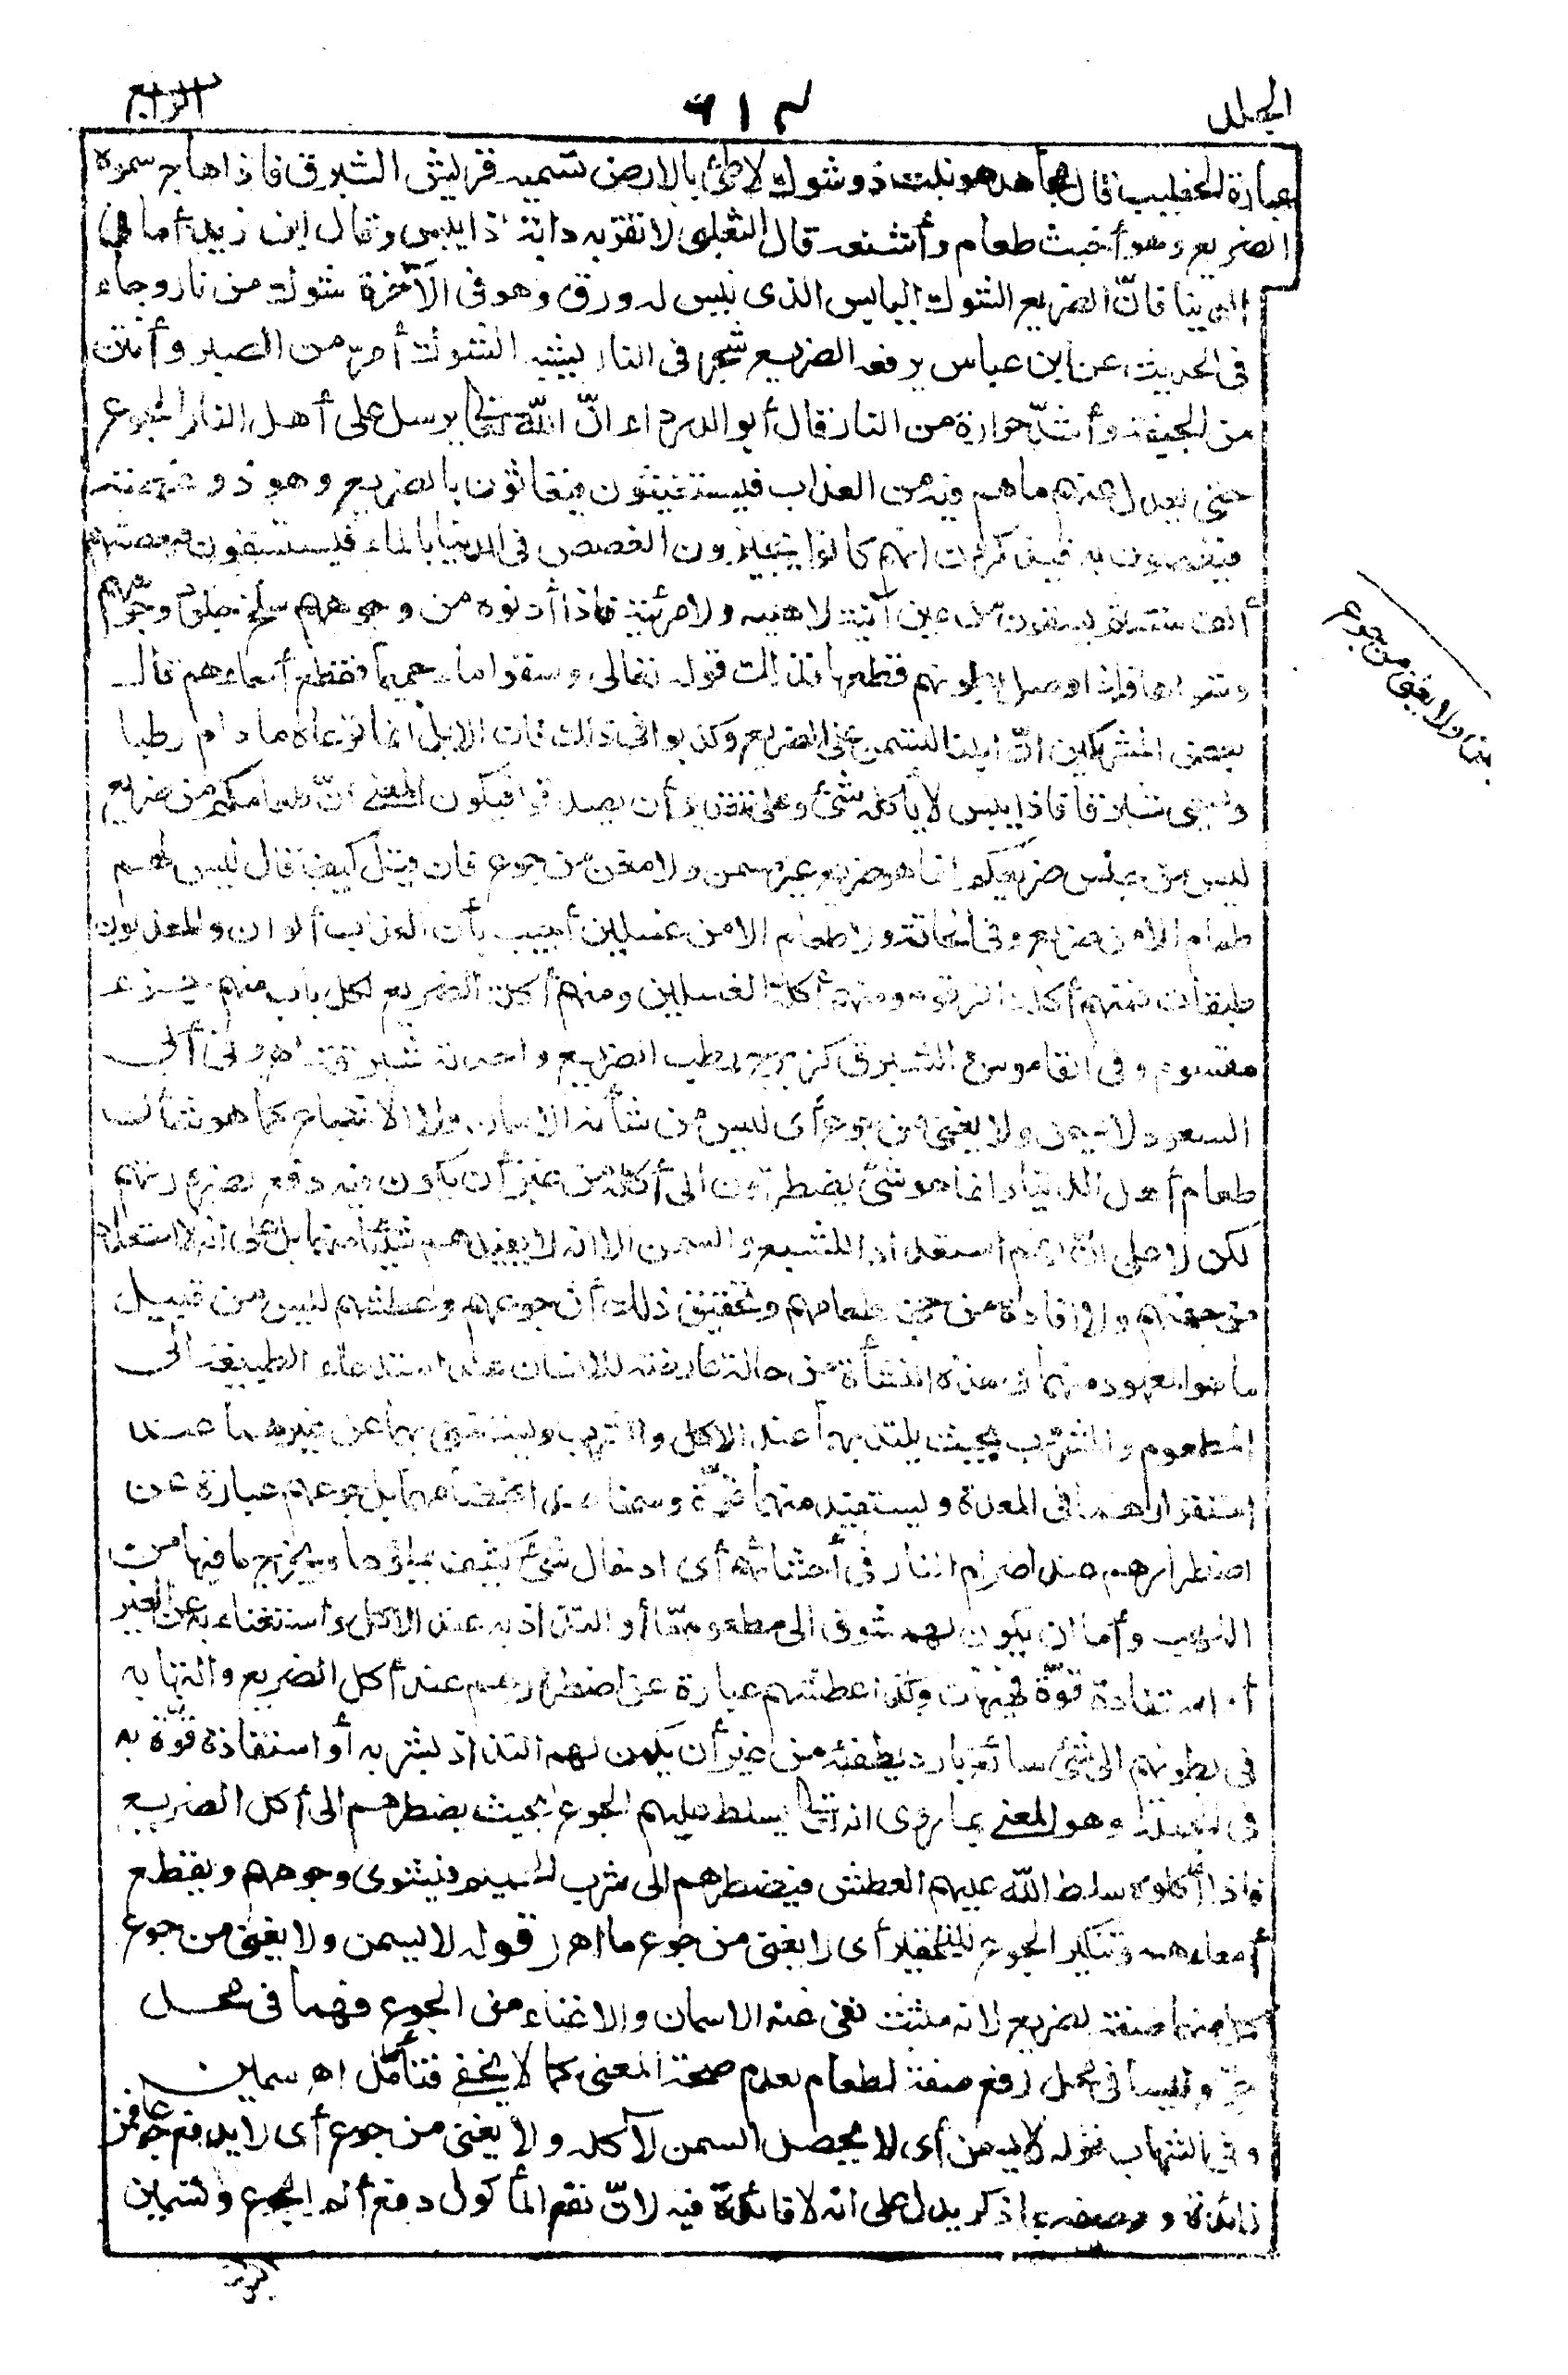 المجلد ٦١٣ الرابع
عبارة الخطيب قال مجاهد هو نبت ذو شوك لاطئ بالارض تسميه قريش الشبرق فاذا هاج سموه
الضريع وهو أخبث طعام وأشنعه قال الثعلبى لا تقربه دابة اذا يبس وقال ابن زيد أما فى
الدنيا فانّ الضريع الشوك اليابس الذى ليس له ورق وهو فى الآخرة شوك من نار وجاء
فى الحديث عن ابن عباس يرفعه الضريع شجر فى النار يشبه الشوك أمرّ من الصبر وأنتن
من الجيفة وأشدّ حرارة من النار قال أبو الدرداء انّ الله تعالى يرسل على أهل النار الجوع
حتى يعدل عندهم ما هم فيه من العذاب فيستغيثون فيغاثون بالضريع وهو ذو غصة
فيغصون به فيذكرون انهم كانوا يجيزون الغصص فى الدنيا بالماء فيستسقون فيعطشهم
ألف سنة ثم يسقون من عين آنية لا هنيه ولا مرئية فاذا أدنوه من وجوههم سلخ جلود وجوههم
وشواها فاذا وصل بطونهم قطعها فذلك قوله تعالى وسقوا ماء حميما فقطع أمعاءهم قال
بعض المشركين انّ ابلنا لتسمن على الضريع وكذبوا فى ذلك فان الابل انما ترعاه ما دام رطبا
ويسمى شبرقا فاذا يبس لا يأكله شئ وعلى تقدير أن يصدقوا فيكون المعنى انّ طعامكم من ضريع
ليس من جنس ضريعكم انما هو ضريع غير مسمن ولا مغن من جوع فان قيل كيف قال ليس لهم
طعام الا من ضريع وفى الحاقة ولا طعام الا من غسلين أجيب بأن العذاب ألوان والمعذبون
طبقات فمنهم أكلة الزقوم ومنهم أكلة الغسلين ومنهم أكلة الضريع لكل باب منهم جزء
مقسوم وفى القاموس الشبرق كزبرج رطب الضريع واحدته شبرقة اه وفى أبى
السعود لا يسمن ولا يغنى من جوع أى ليس من شأنه الاسمان ولا الاشباع كما هو شأن
طعام أهل الدنيا وانما هو شئ يضطرّون الى أكله من غير أن يكون فيه دفع لضرورتهم
لكن لا على انّ لهم استعدادا للشبع والسمن الا انه لا يفيدهم شيئا منهما بل على انه لا استعداد
من جهتهم ولا افادة من جهة طعامهم وتحقيق ذلك أن جوعهم وعطشهم ليس من قبيل
ما هو المعهود منهما فى هذه النشأة من حالة عارضة للانسان عند استدعاء الطبيعة الى
المطعوم والمشروب بحيث يلتذ بهما عند الاكل والشرب ويستغنى بهما عن غيرهما عند
استقرارهما فى المعدة ويستفيد منهما قوّة وسمنا عند انهضامهما بل جوعهم عبارة عن
اضطرارهم عند اضرام النار فى أحشائهم أى ادخال شئ كثيف يملؤها ويخرج ما فيها من
اللهب وأما ان يكون لهم شوق الى مطعوم مّا أو التذاذ به عند الاكل واستغناء به عن الغير
أو استفادة قوّة فهيهات وكذا عطشهم عبارة عن اضطرارهم عند أكل الضريع والتهابه
فى بطونهم الى شئ سائغ بارد يطفئه من غير أن يكون لهم التذاذ بشربه أو استفادة قوّة به
فى الجملة وهو المعنى بما روى انه تعالى يسلط عليهم الجوع بحيث يضطرهم الى أكل الضريع
فاذا أكلوه سلط الله عليهم العطش فيضطرهم الى شرب الحميم فيشوى وجوههم ويقطع
أمعاءهم وتنكير الجوع للتحقير أى لا يغنى من جوع ما اهـ ز قوله لا يسمن ولا يغنى من جوع
كل منهما صفة لضريع لانه مثبت نفى عنه الاسمان والاغناء من الجوع فهما فى محل
جرّ وليسا فى محل رفع صفة لطعام لعدم صحة المعنى كما لا يخفى فتأمّل اه سمين
وفى الشهاب قوله لا يسمن أى لا يحصل السمن لآكله ولا يغنى من جوع أى لا يدفع جوعا فمن
زائدة ووصفه بما ذكر يدل على انه لا فائدة فيه لانّ نفع المأكول دفع ألم الجوع وتسمين
ولا يغنى من جوع